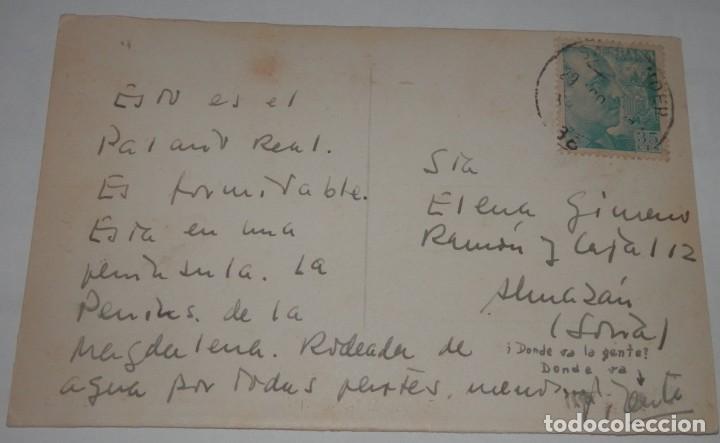 Esto es el
Palacio Real.
Es formidable.
Esta en una
península. La
Penins. de la
Magdalena. Rodeada de
agua por todas partes, menos
Sta
Elena Gimeno
Ramón y Cajal 12
Almazán
(Soria)
¡Donde va la gente?
Donde va
35
todocoleccion.net